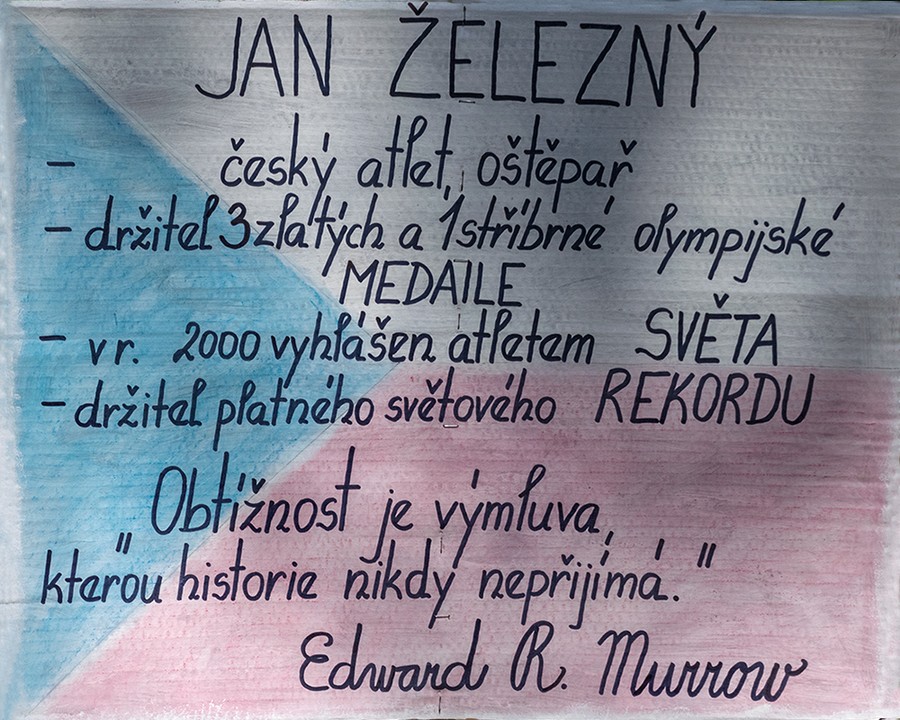 JAN ŽELEZNÝ
- český atlet, oštěpař
- držitel 3 zlatých a 1 stříbrné olympijské
MEDAILE
- v r. 2000 vyhlášen atletem SVĚTA
- držitel platného světového REKORDU
"Obtížnost je výmluva,
kterou historie nikdy nepřijímá."
Edward R. Murrow